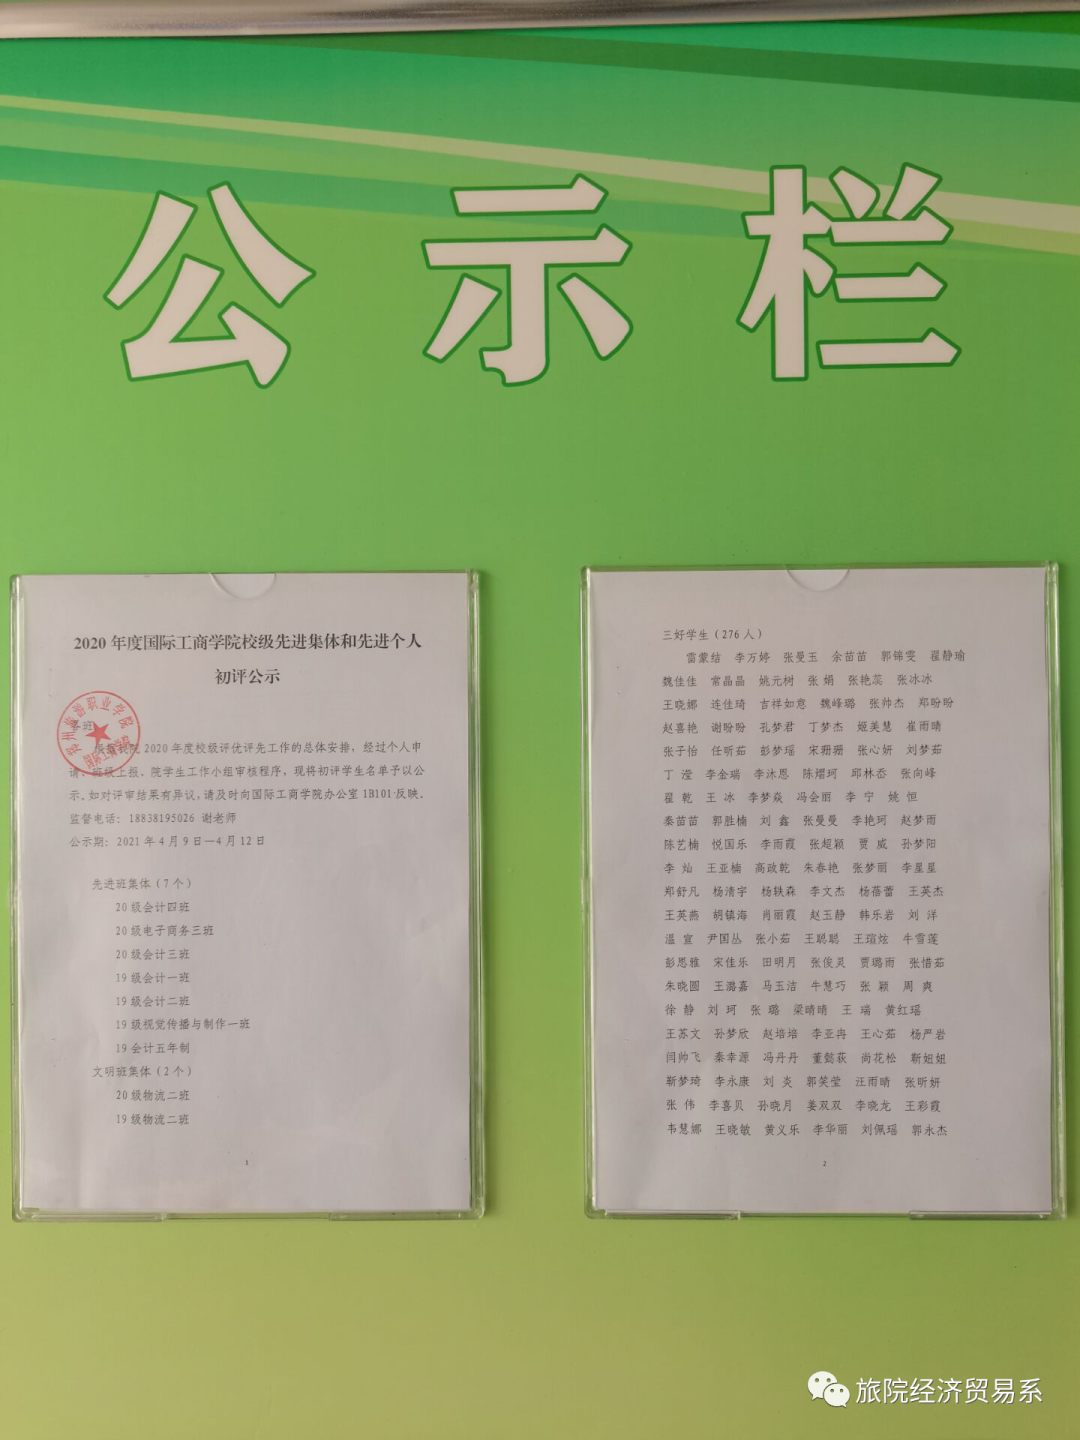 公示栏
2020 年度国际工商学院校级先进集体和先进个人
初评公示
郑州旅游职业学院
国际工商学院
各班:
根据我院 2020 年度校级评优评先工作的总体安排，经过个人申
请，班级上报，院学生工作小组审核程序，现将初评学生名单予以公
示。如对评审结果有异议，请及时向国际工商学院办公室 1B101 反映。
监督电话：18838195026 谢老师
公示期：2021 年 4 月 9 日—4 月 12 日
先进班集体（7 个）
20 级会计四班
20 级电子商务三班
20 级会计三班
19 级会计一班
19 级会计二班
19 级视觉传播与制作一班
19 会计五年制
文明班集体（2 个）
20 级物流二班
19 级物流二班
1
三好学生（276 人）
雷蒙结 李万婷 张曼玉 余苗苗 郭锦雯 翟静瑜
魏佳佳 常晶晶 姚元树 张 娟 张艳蕊 张冰冰
王晓娜 连佳琦 吉祥如意 魏峰璐 张帅杰 郑盼盼
赵喜艳 谢盼盼 孔梦君 丁梦杰 姬美慧 崔雨晴
张子怡 任昕茹 彭梦瑶 宋珊珊 张心妍 刘梦茹
丁 滢 李金瑞 李沐恩 陈熠珂 邱林岙 张向峰
翟 乾 王 冰 李梦焱 冯会丽 李 宁 姚 恒
秦苗苗 郭胜楠 刘 鑫 张曼曼 李艳珂 赵梦雨
陈艺楠 悦国乐 李雨霞 张超颖 贾 威 孙梦阳
李 灿 王亚楠 高政乾 朱春艳 张梦丽 李星星
郑舒凡 杨清宇 杨轶森 李文杰 杨蓓蕾 王英杰
王英燕 胡镇海 肖丽霞 赵玉静 韩乐岩 刘 洋
温 宣 尹国丛 张小茹 王聪聪 王瑄炫 牛雪莲
彭思雅 宋佳乐 田明月 张俊灵 贾璐雨 张惜茹
朱晓圆 王潞嘉 马玉洁 牛慧巧 张 颖 周 爽
徐 静 刘 珂 张 璐 梁晴晴 王 瑞 黄红瑶
王苏文 孙梦欣 赵培培 李亚冉 王心茹 杨严岩
闫帅飞 秦幸源 冯丹丹 董懿荻 尚花松 靳妞妞
靳梦琦 李永康 刘 炎 郭笑莹 汪雨晴 张昕妍
张 伟 李喜贝 孙晓月 姜双双 李晓龙 王彩霞
韦慧娜 王晓敏 黄义乐 李华丽 刘佩瑶 郭永杰
2
旅院经济贸易系